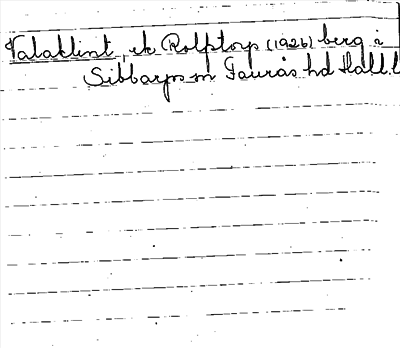 Valaklint, ek Rolfstorp (1926) berg å
Sibbarps sn Faurås hd Hall. l